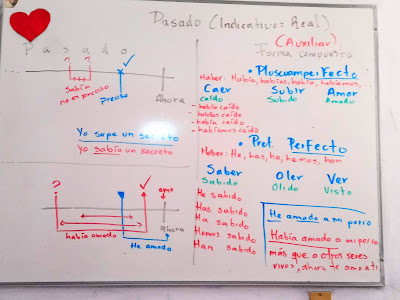 Pasado (Indicativo = Real)
Pasado
?
?
Sabía
no es preciso
Preciso
Ahora
Yo supe un secreto
Yo sabía un secreto
?
Ahora
había amado
He amado
(Auxiliar)
Forma compuesta
• Pluscuamperfecto
Haber: Había, habías, había, habíamos,
Caer Subir Amar
Caído Subido Amado
- había caído
- habías caído
- había caído
- habíamos caído
• Pret. Perfecto
Haber: He, has, ha, hemos, han
Saber Oler Ver
Sabido Olido Visto
He sabido
Has sabido
Ha sabido
Hemos sabido
Han sabido
He amado a mi perro
Había amado a mi perro
más que a otros seres
vivos, ahora te amo a ti